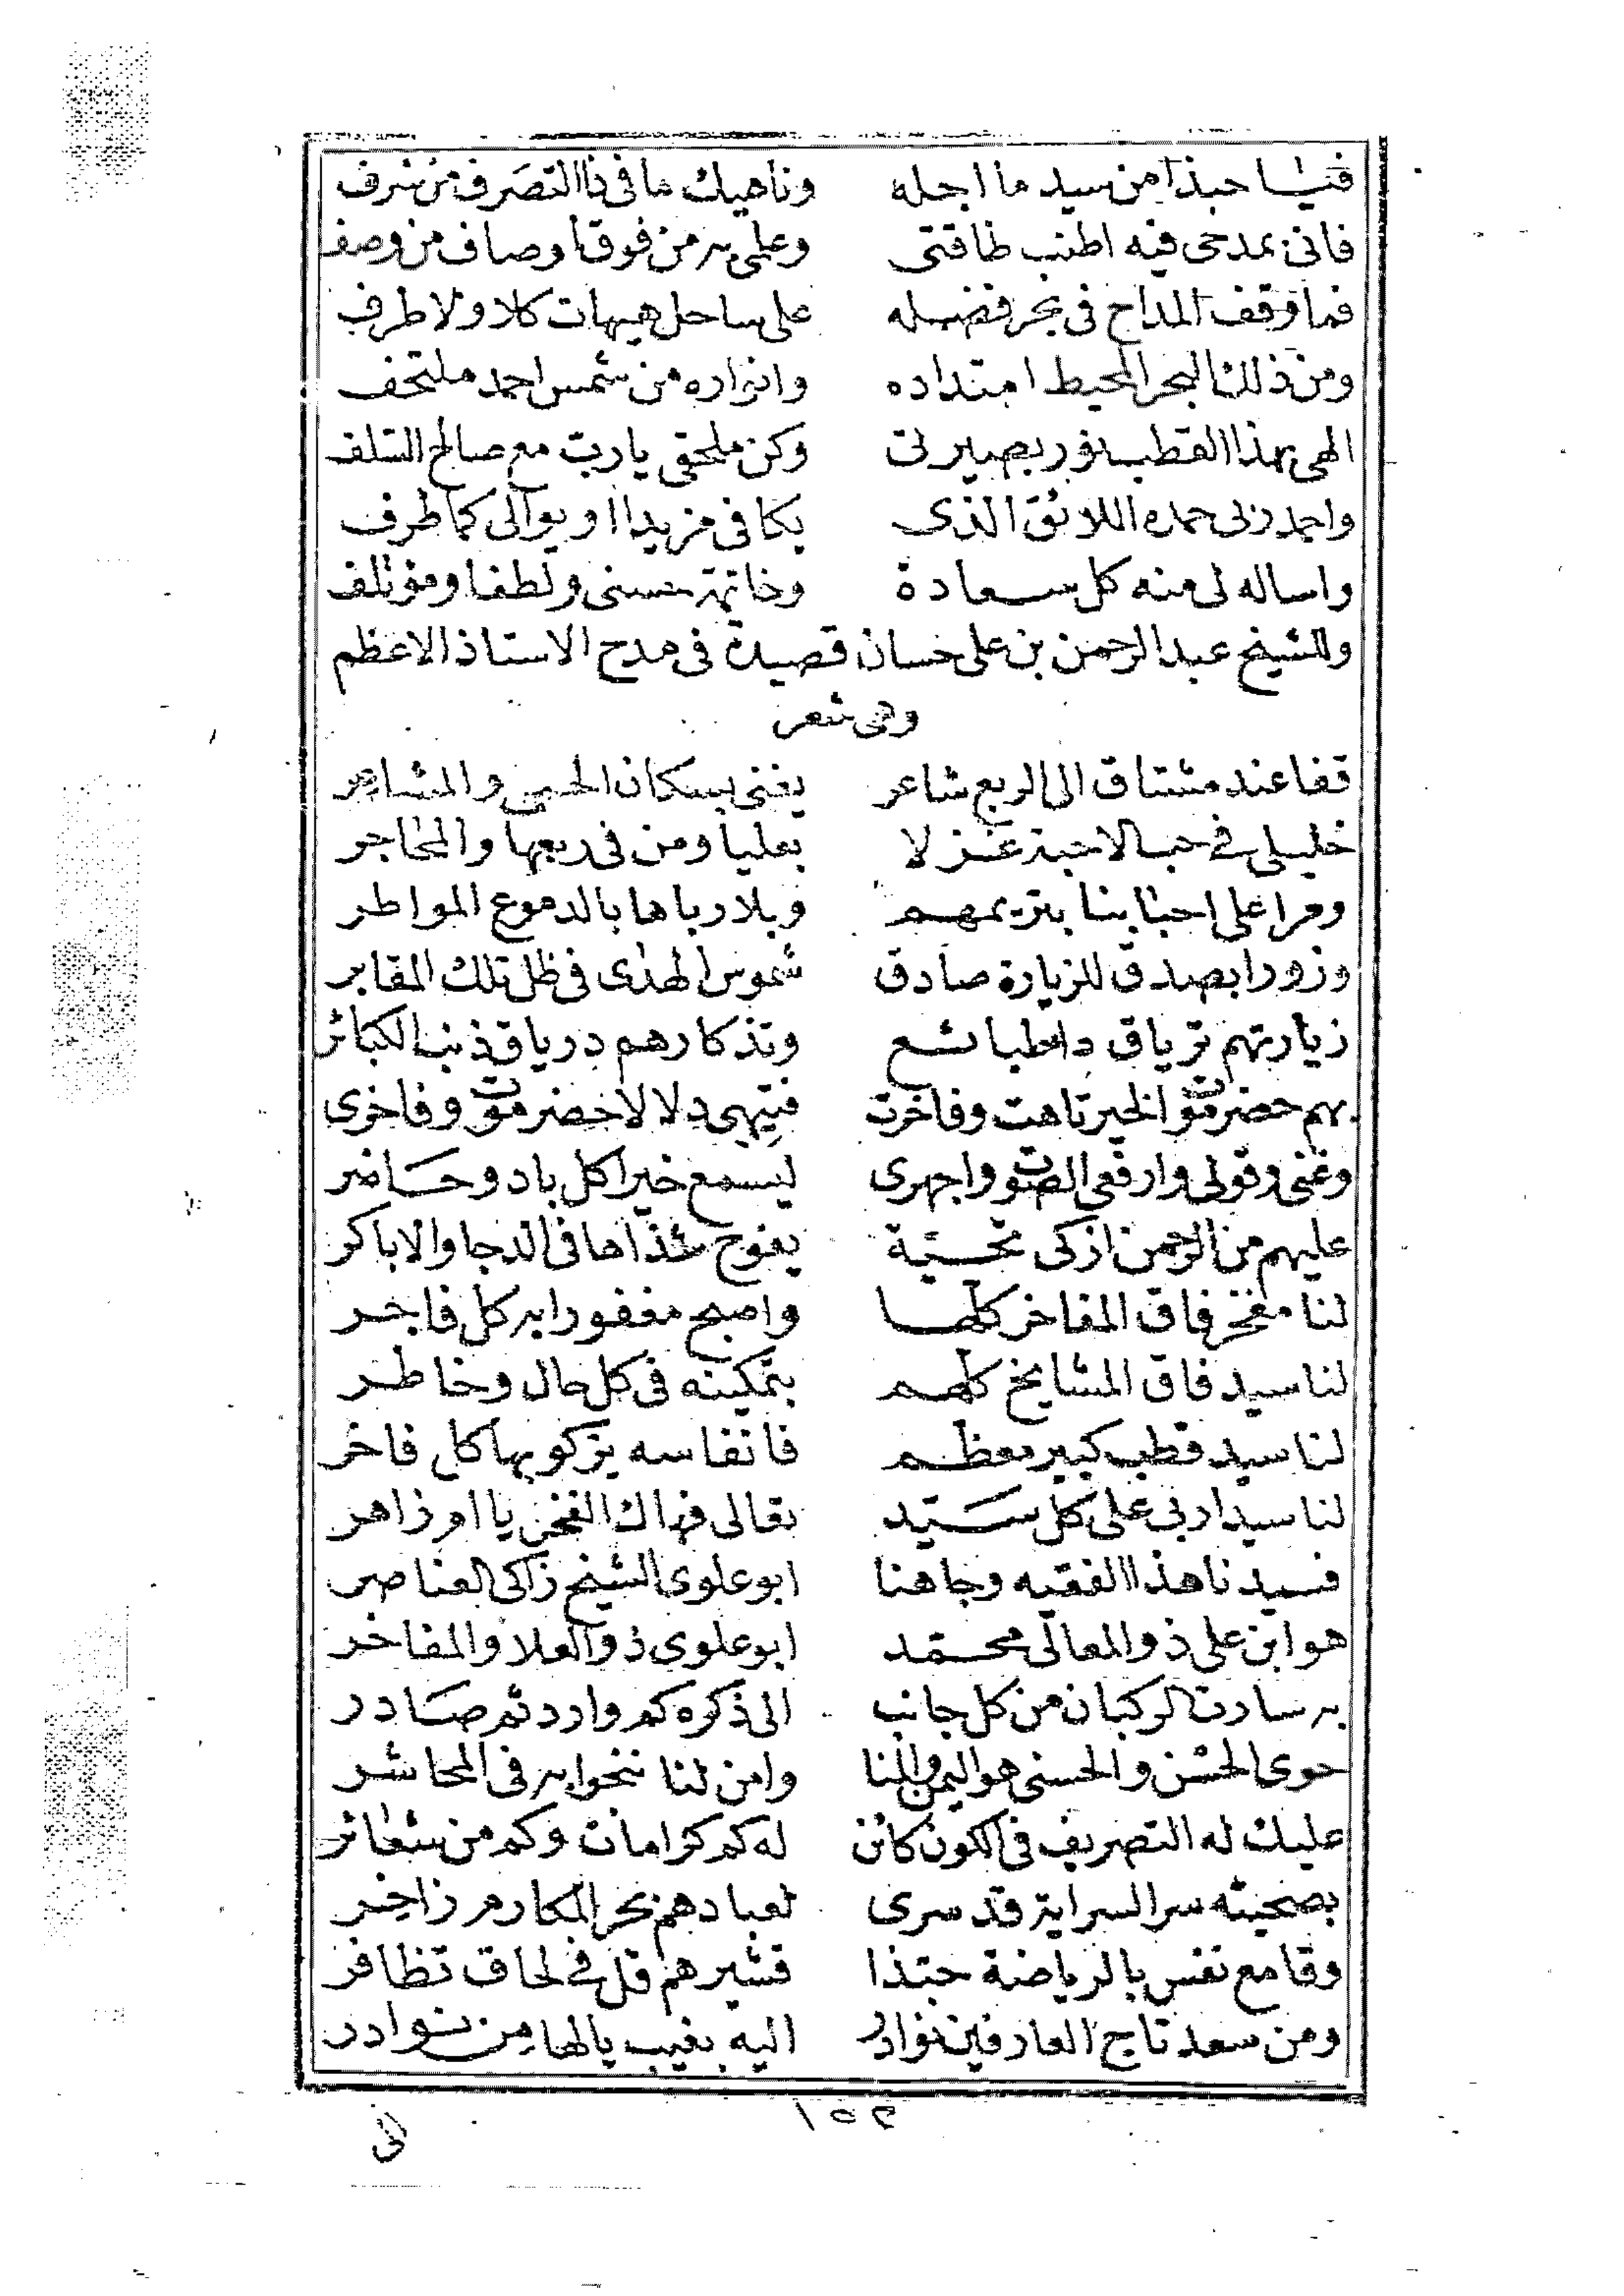 فيا حبذا من سيد ما اجله وناهيك ما فى ذا التصرف من شرف
فانى بمدحى فيه اطنب طاقتى وعلمى به من فوق اوصاف من وصف
فما وقف المداح فى بحر فضله على ساحل هيهات كلا ولا طرف
ومن ذلك البحر المحيط امتداده وانواره من شمس احمد ملتحف
الهى بهذا القطب نور بصيرتى وكن ملحقى يارب مع صالح السلف
واحمد ربى حمده اللائق الذى يكافى مزيدا او يوالى كما طرف
واساله لى منه كل سعادة وخاتمة حسنى ولطفا ومؤتلف
وللشيخ عبد الرحمن بن على حسان قصيدة فى مدح الاستاذ الاعظم
وهى شعر
قفا عند مشتاق الى الربع شاعر يغنى بسكان الحمى والمشاعر
خليلى فى حب الاحبة غزلا بعليا ومن فى ربعها والمحاجر
ومرا على احبابنا بتريمهم وبلا رباها بالدموع المواطر
وزورا بصدق للزيارة صادق شموس الهدى فى ظل تلك المقابر
زيارتهم ترياق وتذكارهم درياق ذنب الكبائر
بهم حضرموت الخير تاهت وفاخرت فتيهى دلالا حضرموت وفاخرى
وغنى وقولى وارفعى الصوت واجهرى ليسمع خيرا كل باد وحاضر
عليهم من الرحمن ازكى تحية يفوح شذاها فى الدجا والاباكر
لنا مفخر فاق المفاخر كلها واصبح مغفورا به كل فاجر
لنا سيد فاق المشايخ كلهم بتمكينه فى كل حال وخاطر
لنا سيد قطب كبير معظم فانفاسه يزكو بها كل فاخر
لنا سيد اربى على كل سيد تعالى فهاك الفخر يا ام زاهر
فسيدنا هذا الفقيه وجاهنا ابو علوى الشيخ زاكى العناصر
هو ابن على ذو المعالى محمد ابو علوى ذو العلا والمفاخر
به سارت الركبان من كل جانب الى ذكره كم وارد ثم صادر
حوى الحسن والحسنى هو اليمن والمنا وامن لنا ننجوا به فى المحاشر
عليك له التصريف فى الكون كائن له كم كرامات وكم من شعائر
بصحبته سر السراية قد سرى لعبادهم بحر المكارم زاخر
وقامع نفس بالرياضة حبذا قشيرهم قل فى لحاق تظافر
ومن سعد تاج العارفين نوادر اليه بغيب يالها من نوادر
١٥٣
الى